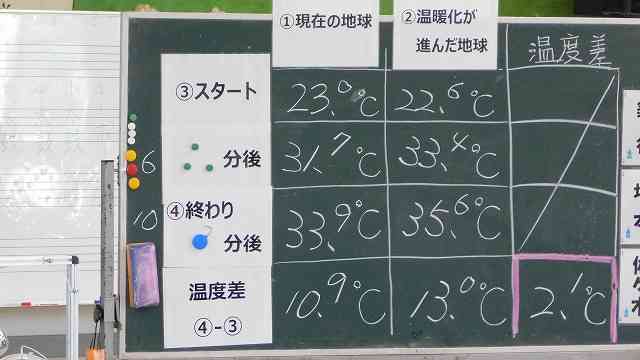 ①現在の地球
②温暖化が
進んだ地球
温度差
③スタート
23.0℃
22.6℃
6
分後
31.7℃
33.4℃
10
④終わり
分後
33.9℃
35.6℃
温度差
④-③
10.9℃
13.0℃
2.1℃